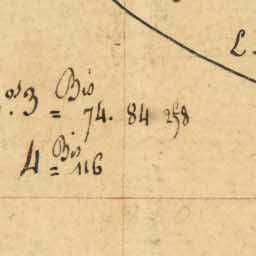 L.
os. 3 = Bis 74. 84 258
4 = Bis 116